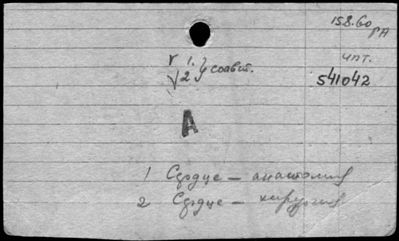 15.8.60
РА
чпт.
541042
√ 1. } соавт.
√ 2
А
1 Сердце – анатомия
2 Сердце – хирургия